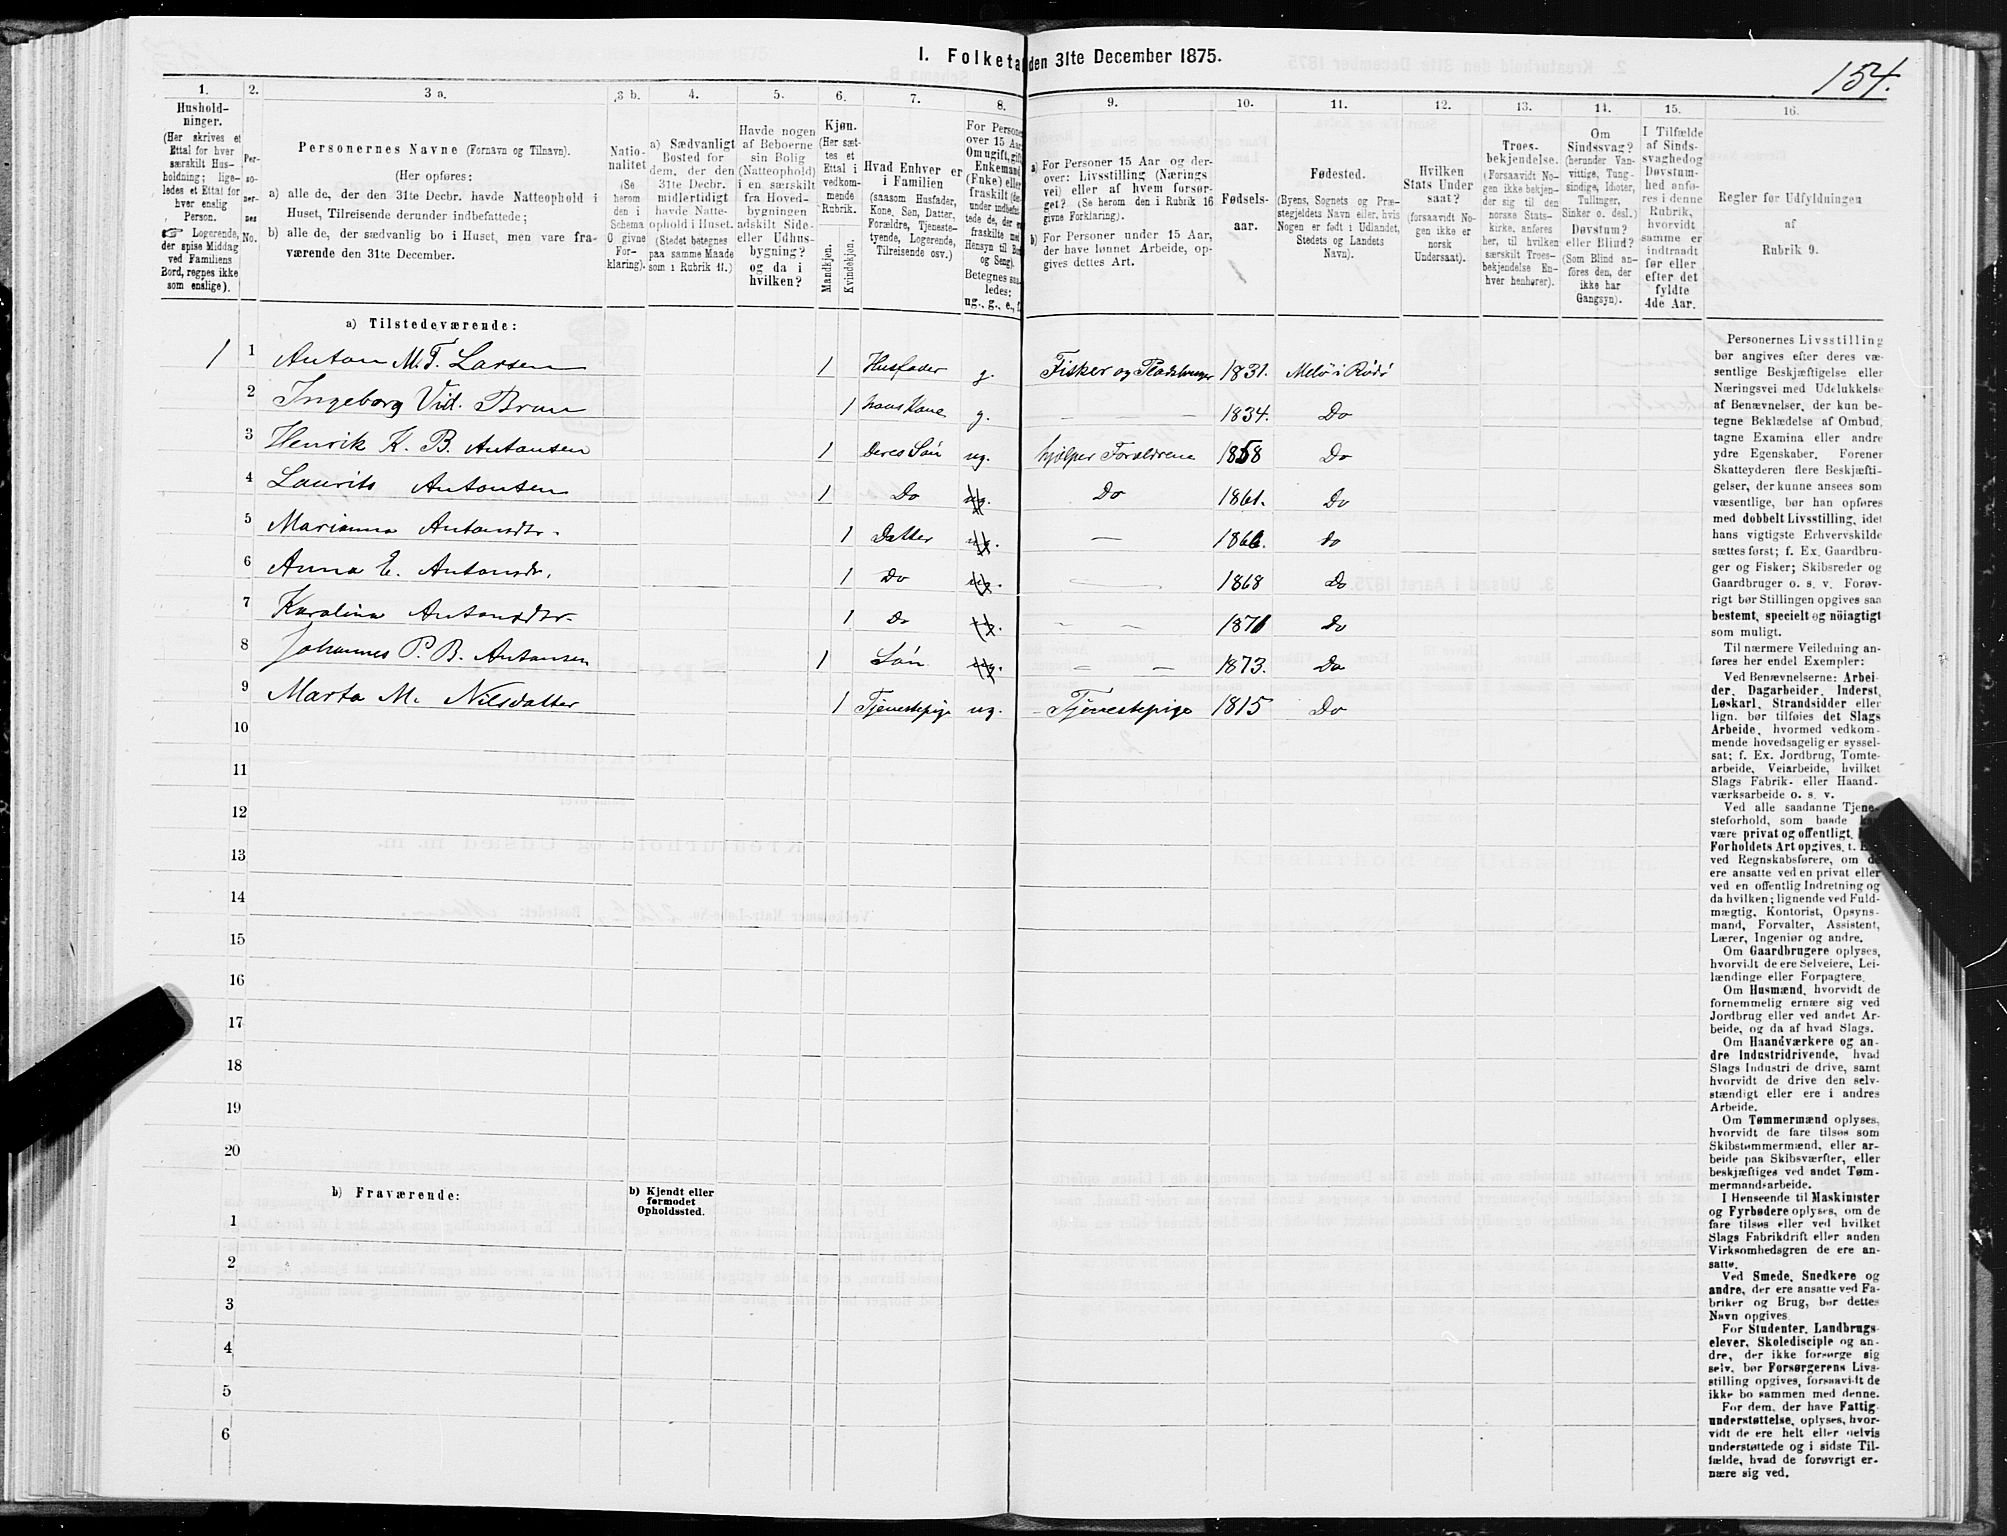 154.
I. Folketa den 31te December 1875.
1. 2. 3 a. 3 b. 4. 5. 6. 7. 8. 9. 10. 11. 12. 13. 14. 15. 16.
Hushold-
ninger.
(Her skrives et
Ettal for hver
særskilt Hus-
holdning; lige-
ledes et Ettal for
hver enslig
Person.
☞ Logerende,
der spise Middag
ved Familiens
Bord, regnes ikke
som enslige).
Per-
so-
ner-
nes
No.
Personernes Navne (Fornavn og Tilnavn).
(Her opføres:
a) alle de, der den 31te Decbr. havde Natteophold i
Huset, Tilreisende derunder indbefattede;
b) alle de, der sædvanlig bo i Huset, men vare fra-
værende den 31te December.
Natio-
nalitet
(Se
herom
den i
Schema
G givne
For-
klaring).
a) Sædvanligt
Bosted for
dem, der den
31te Decbr.
midlertidigt
havde Natte-
ophold i Huset.
(Stedet betegnes
paa samme Maade
som i Rubrik 11.)
Havde nogen
af Beboerne
sin Bolig
(Natteophold)
i en særskilt
fra Hoved-
bygningen
adskilt Side-
eller Udhus-
bygning?
og da i
hvilken?
Kjøn.
(Her sæt-
tes et
Ettal i
vedkom-
mende
Rubrik.
Mandkjøn.
Kvindekjøn.
Hvad Enhver er
i Familien
(saasom Husfader,
Kone, Søn, Datter,
Forældre, Tjeneste-
tyende, Logerende,
Tilreisende osv.)
For Persone
over 15 Aa
Om ugift, gift
Enkemand
(Enke) elle
fraskilt
Betegnes saa-
ledes:
ug., g., e., f.
a) For Personer 15 Aar og der-
over: Livsstilling (Nærings-
vei) eller af hvem forsør-
get? (Se herom den i Rubrik 16
givne Forklaring).
b) For Personer under 15 Aar,
der have lønnet Arbeide, op-
gives dettes Art.
Fødsels-
aar.
Fødested.
(Byens, Sognets og Præ-
stegjeldets Navn eller, hvis
Nogen er født i Udlandet,
Stedets og Landets
Navn).
Hvilken
Stats Under
saat?
(forsaavidt No-
gen ikke er
norsk
Undersaat).
Troes-
bekjendelse.
(Forsaavidt No-
gen ikke bekjen-
der sig til den
norske Stats-
kirke, anføres
her, til hvilken
særskilt Troes-
bekjendelse En-
hver henhører).
Om
Sindssvag?
(herunder Van-
vittige, Tung-
sindige, Idioter,
Tullinger,
Sinker o. desl.)
Døvstum?
eller Blind?
(Som Blind an-
føres den, der
ikke har
Gangsyn).
I Tilfælde
af Sinds-
svaghed og
Døvstum-
hed anfø-
res i denne
Rubrik,
hvorvidt
samme er
indtraadt
før eller
efter det
fyldte
4de Aar.
Regler for Udfyldningen
af
Rubrik 9.
a) Tilstedeværende:
1 1 Anton M. T. Larsen 1 Husfader g. Fisker og Pladsbruger 1831. Melö i Rödö
2 Ingeborg Vid. Brun 1 hans Kone g. — — — 1834. Do
3 Henrik K. B. Antonsen 1 Deres Søn ug. hjelper Forældrene 1858 Do
4 Laurits Antonsen 1 Do ug. Do 1861. Do
5 Marianna Antonsdtr. 1 Datter ug. — 1866. do
6 Anna E. Antonsdr. 1 Do ug. — 1868 Do
7 Karolina Antonsdtr 1 Do ug. — — 1871 Do
8 Johannes P. B. Antonsen 1 Søn ug. — — 1873. Do
9 Marta M. Nilsdatter 1 Tjenestepige ug. Tjenestepige 1815 Do
10
11
12
13
14
15
16
17
18
19
20
b) Fraværende:
b) Kjendt eller
formodet
Opholdssted.
1
2
3
4
5
6
Personernes Livsstilling
bør angives efter deres væ-
sentlige Beskjæftigelse eller
Næringsvei med Udelukkelse
af Benævnelser, der kun be-
tegne Beklædelse af Ombud,
tagne Examina eller andre
ydre Egenskaber. Forener
Skatteyderen flere Beskjæfti-
gelser, der kunne ansees som
væsentlige, bør han opføres
med dobbelt Livsstilling, idet
hans vigtigste Erhvervskilde
sættes først; f. Ex. Gaardbru-
ger og Fisker; Skibsreder og
Gaardbruger o. s. v. Forøv-
rigt bør Stillingen opgives saa
bestemt, specielt og nöiagtigt
som muligt.
Til nærmere Veiledning an-
føres her endel Exempler:
Ved Benævnelserne: Arbei-
der, Dagarbeider, Inderst,
Løskarl, Strandsidder eller
lign. bør tilføies det Slags
Arbeide, hvormed vedkom-
mende hovedsagelig er syssel-
sat; f. Ex. Jordbrug, Tomte-
arbeide, Veiarbeide, hvilket
Slags Fabrik- eller Haand-
værksarbeide o. s. v.
Ved alle saadanne Tjene-
steforhold, som baade
være privat og offentligt,
Forholdets Art opgives,
ved Regnskabsførere, om de
ere ansatte ved en privat eller
ved en offentlig Indretning og
da hvilken; lignende ved Fuld-
mægtig, Kontorist, Opsyns-
mand, Forvalter, Assistent,
Lærer, Ingeniør og andre.
Om Gaardbrugere oplyses,
hvorvidt de ere Selveiere, Lei-
lændinge eller Forpagtere.
Om Husmænd, hvorvidt de
fornemmelig ernære sig ved
Jordbrug eller ved andet Ar-
beide, og da af hvad Slags.
Om Haandværkere og an-
dre Industridrivende, hvad
Slags Industri de drive, samt
hvorvidt de drive den selv-
stændigt eller ere i andres
Arbeide.
Om Tømmermænd oplyses,
hvorvidt de fare tilsøs som
Skibstømmermænd, eller ar-
beide paa Skibsværfter, eller
beskjæftiges ved andet Tøm-
mermandsarbeide.
I Henseende til Maskinister
og Fyrbødere oplyses, om de
fare tilsøs eller ved hvilket
Slags Fabrikdrift eller anden
Virksomhedsgren de ere an-
satte.
Ved Smede, Snedkere og
andre, der ere ansatte ved Fa-
briker og Brug, bør dettes
Navn opgives.
For Studenter, Landbrugs-
elever, Skoledisciple og an-
dre, der ikke forsørge sig
selv, bør Forsørgerens Livs-
stilling opgives, forsaavidt de
ikke bo sammen med denne.
For dem, der have Fattig-
understøttelse, oplyses, hvor-
vidt de ere helt eller delvis
understøttede og i sidste Til-
fælde, hvad de forøvrigt er-
nære sig ved.